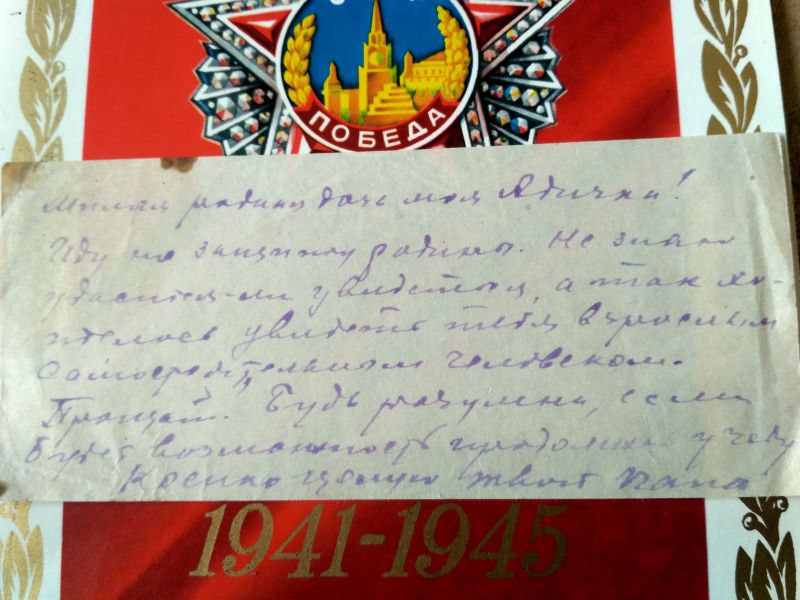 ПОБЕДА
Милая родная дочь моя Адичка!
Иду на защиту родины. Не знаю
удастся-ли увидеться, а так хо-
телось увидеть тебя взрослым
самостоятельным человеком.
Прощай. Будь разумна, если
будет возможность продолжай учебу
Крепко целую твой папа
1941-1945